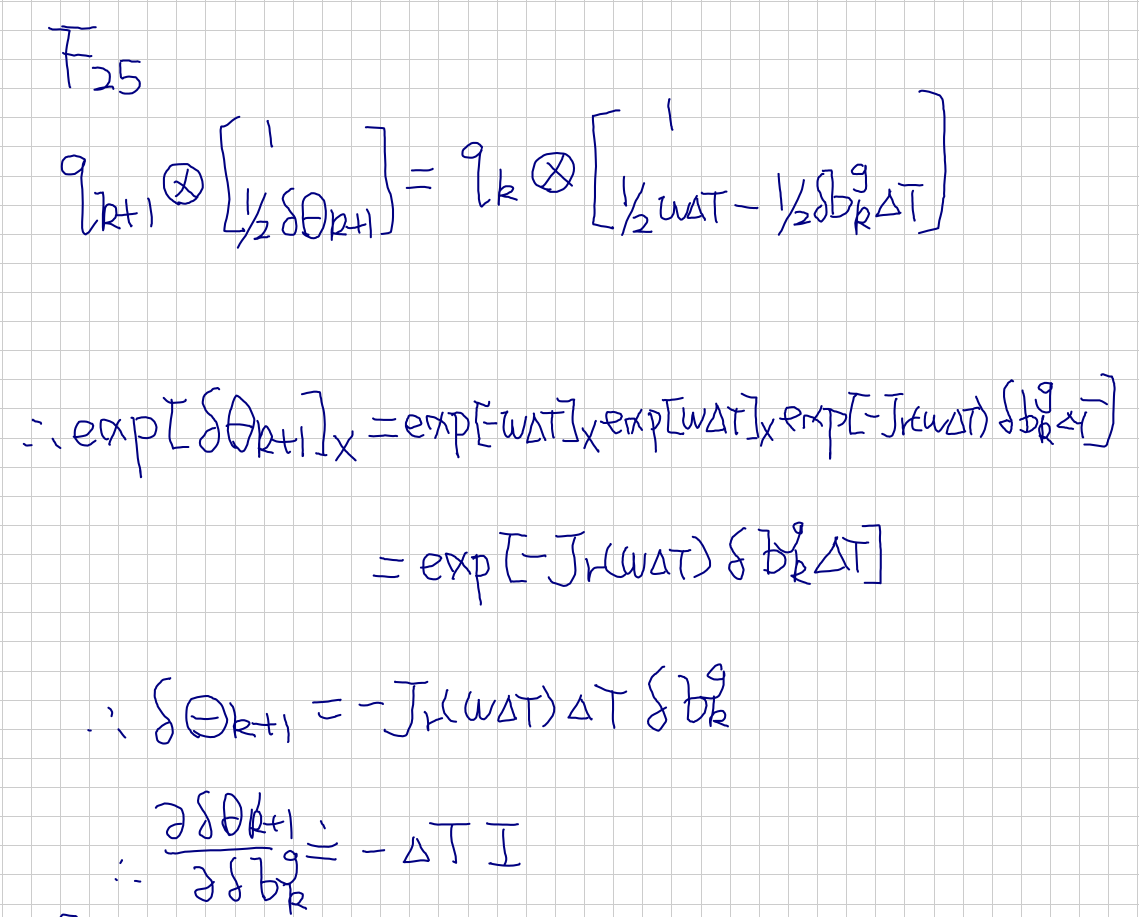 F₂₅
q_{k+1} ⊗ [1; 1/2 δθ_{k+1}] = q_k ⊗ [1; 1/2 wΔT − 1/2 δb_k^g ΔT]
∴ exp[δθ_{k+1}]_× = exp[-wΔT]_× exp[wΔT]_× exp[-Jr(wΔT) δb_k^g ΔT]
= exp[-Jr(wΔT) δb_k^g ΔT]
∴ δθ_{k+1} = -Jr(wΔT) ΔT δb_k^g
∴ ∂δθ_{k+1} / ∂δb_k^g ≐ -ΔT I